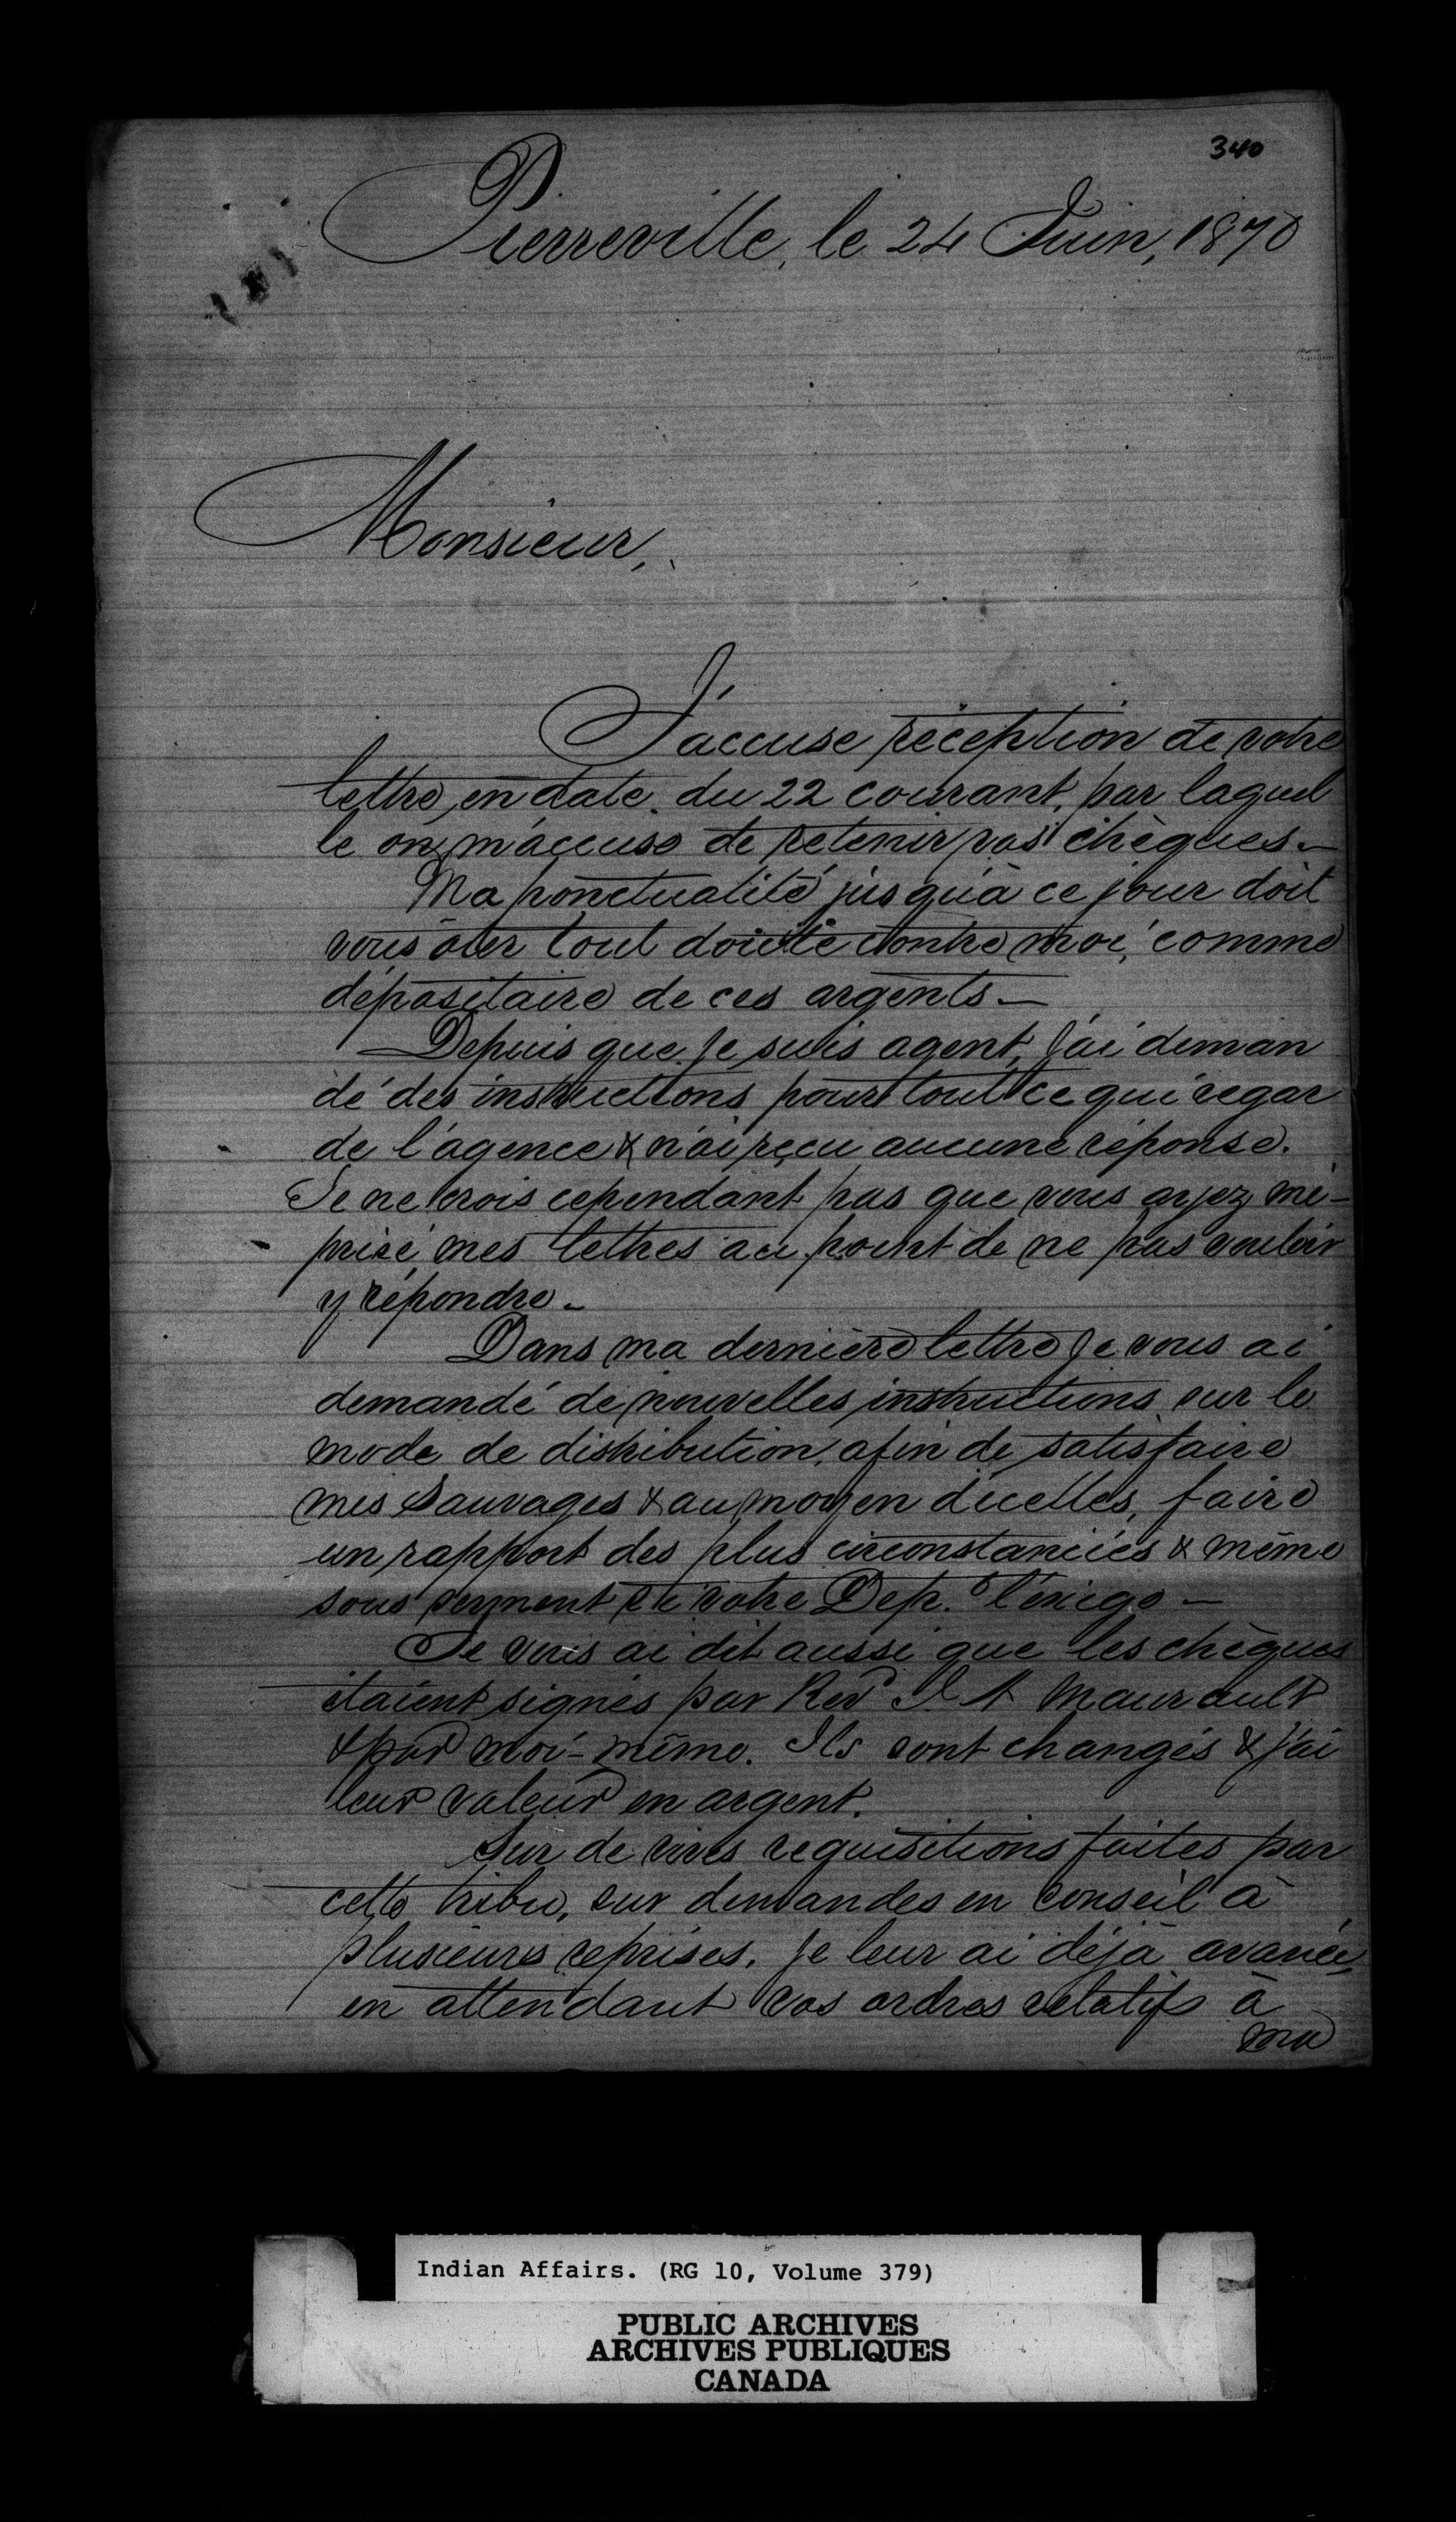 340
Pierreville, le 24 Juin, 1870
Monsieur,
J'accuse réception de votre
lettre, en date du 22 courant, par laquel
le on m'accuse de retenir vos chèques.—
Ma ponctualité jusqu'à ce jour doit
vous ôter tout doute contre moi, comme
dépositaire de ces argents.—
Depuis que je suis agent, j'ai deman
dé des instructions pour tout ce qui regar
de l'agence & n'ai reçu aucune réponse.
Je ne crois cependant pas que vous ayez mé-
prisé mes lettres au point de ne pas vouloir
y répondre.—
Dans ma dernière lettre je vous ai
demandé de nouvelles instructions sur le
mode de distribution, afin de satisfaire
mes Sauvages & au moyen d'icelles, faire
un rapport des plus circonstanciés & même
sous serment si votre Dep.t l'exige—
Je vous ai dit aussi que les chèques
étaient signés par Revd J. A Maurault
& par moi-même. Ils sont changés & j'ai
leur valeur en argent.
Sur de vives requisitions faites par
cette tribu, sur demandes en conseil à
plusieurs reprises, je leur ai déjà avancé,
en attendant vos ordres relatifs à
ma
Indian Affairs. (RG 10, Volume 379)
PUBLIC ARCHIVES
ARCHIVES PUBLIQUES
CANADA